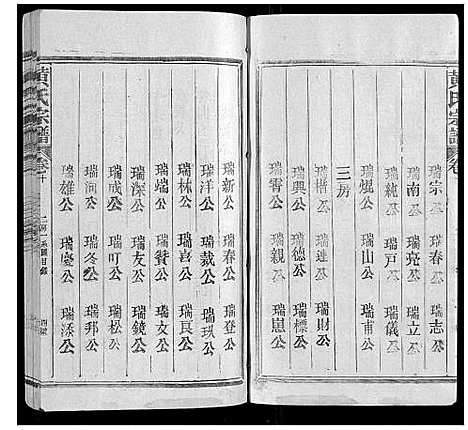 黄氏宗譜
瑞宗公 瑞春公 瑞志公
瑞南公 瑞亮公 瑞立公
瑞純公 瑞戸公 瑞儀公
瑞焜公 瑞山公 瑞甫公
三房
瑞楷公 瑞連公 瑞財公
瑞興公 瑞德公 瑞標公
瑞霄公 瑞親公 瑞崑公
瑞新公 瑞春公 瑞登公
瑞洋公 瑞哉公 瑞公
瑞林公 瑞喜公 瑞良公
瑞端公 瑞贊公 瑞文公
瑞深公 瑞友公 瑞鏡公
瑞成公 瑞叮公 瑞松公
瑞河公 瑞冬公 瑞邦公
瑞雄公 瑞慶公 瑞添公
黄氏宗譜
二房 系圖目錄